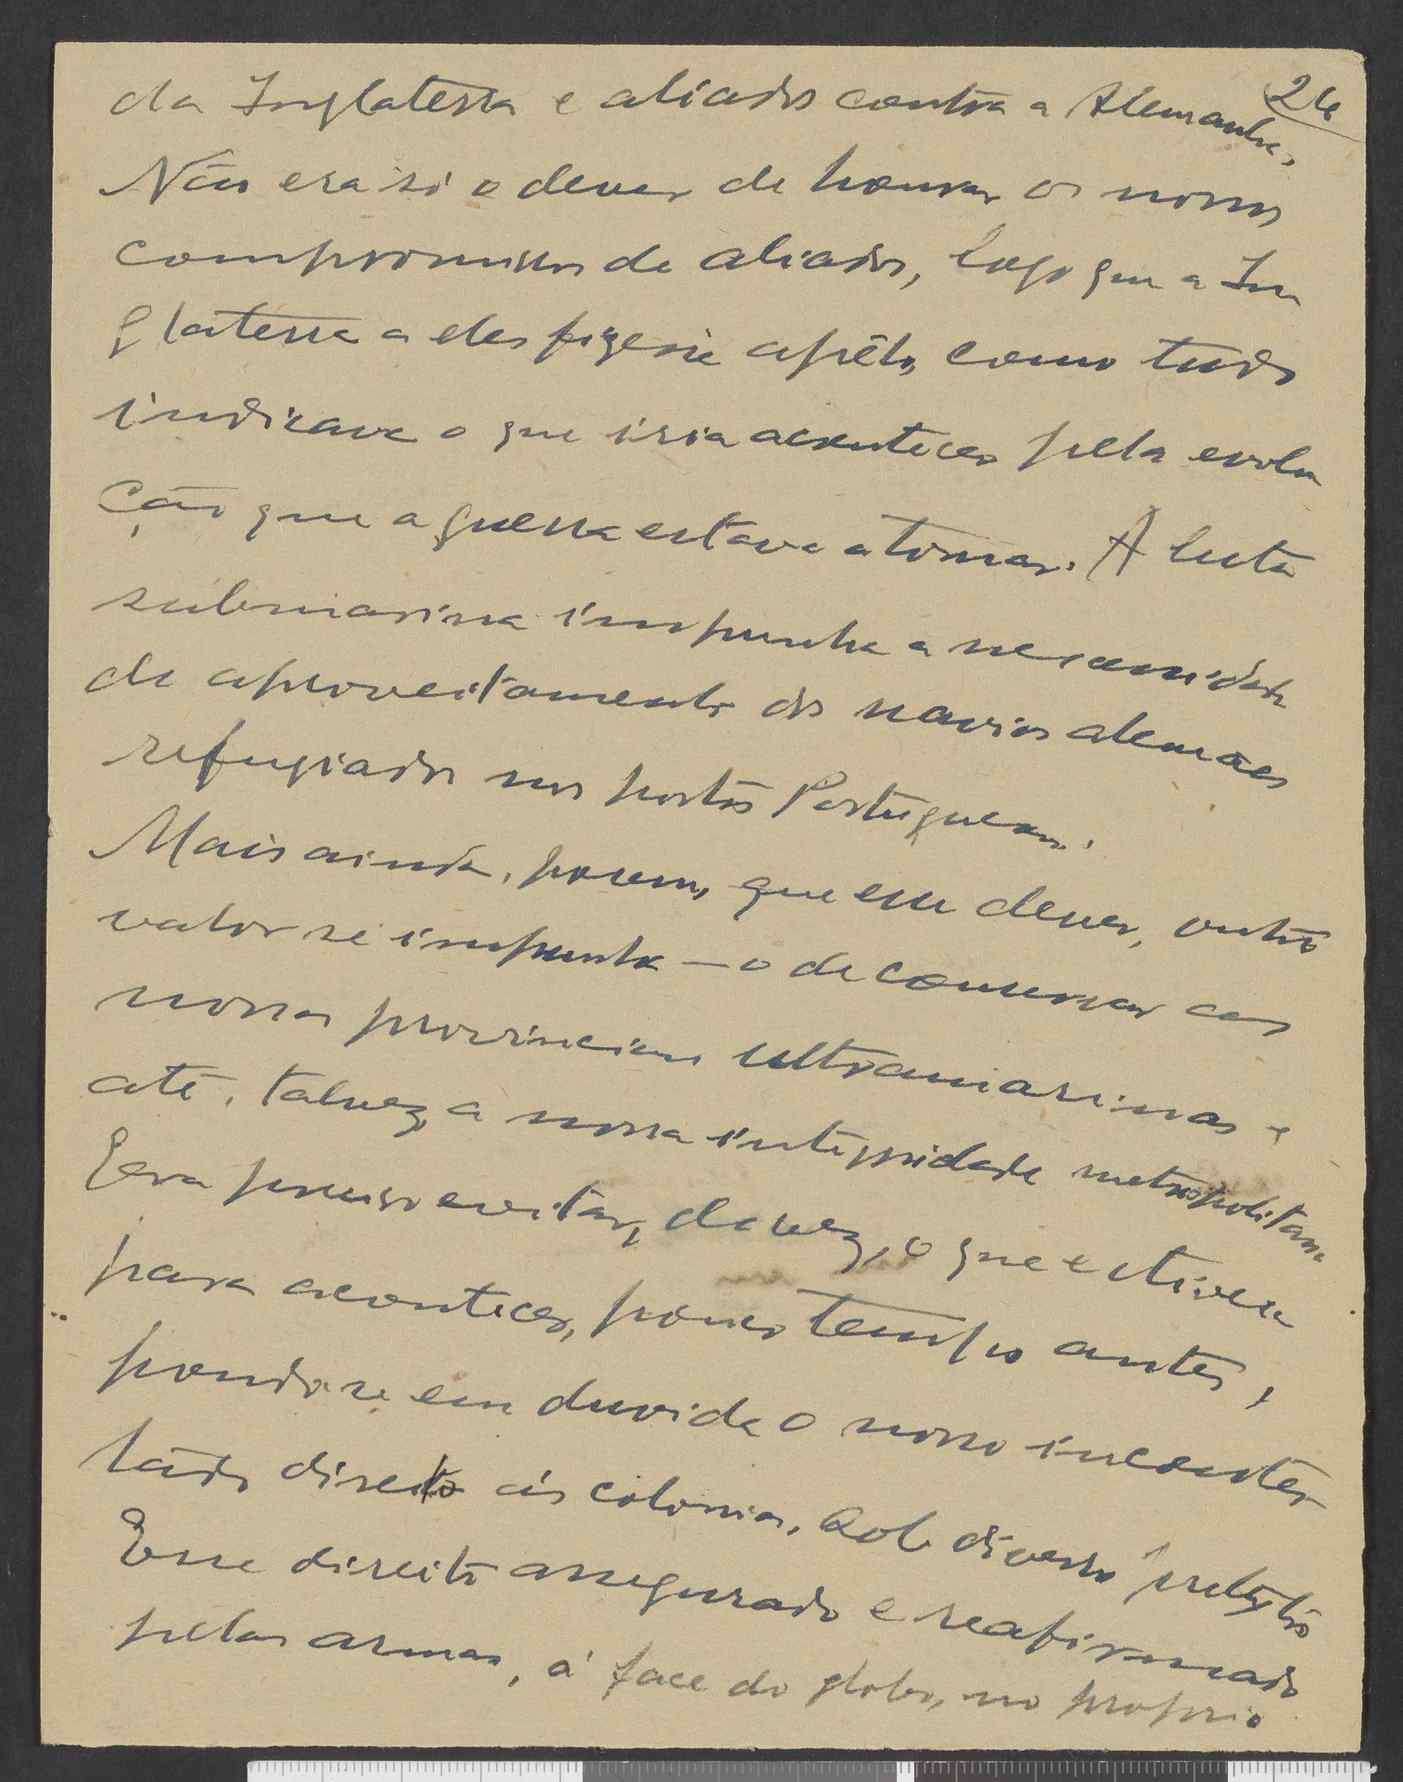 24
da Inglaterra e aliados contra a Alemanha.
Não era só o dever de honrar os nossos
compromissos de aliados, logo que a In
glaterra a eles fizesse apêlo, como tudo
indicava o que iria acontecer pela evolu
ção que a guerra estava a tomar. A luta
submarina impunha a necessidade
de aproveitamento dos navios alemães
refugiados nos portos Portugueses.
Mais ainda, porem, que esse dever, outro
valor se impunha — o de conservar as
nossas provincias ultramarinas e
até, talvez, a nossa integridade metropolitana
Era preciso evitar, de vez, o que estivera
para acontecer, pouco tempo antes,
pondo-se em duvida o nosso incontes
tado direito ás colonias, sob diverso pretexto
Esse direito assegurado e reafirmado
pelas armas, á face do globo, no proprio